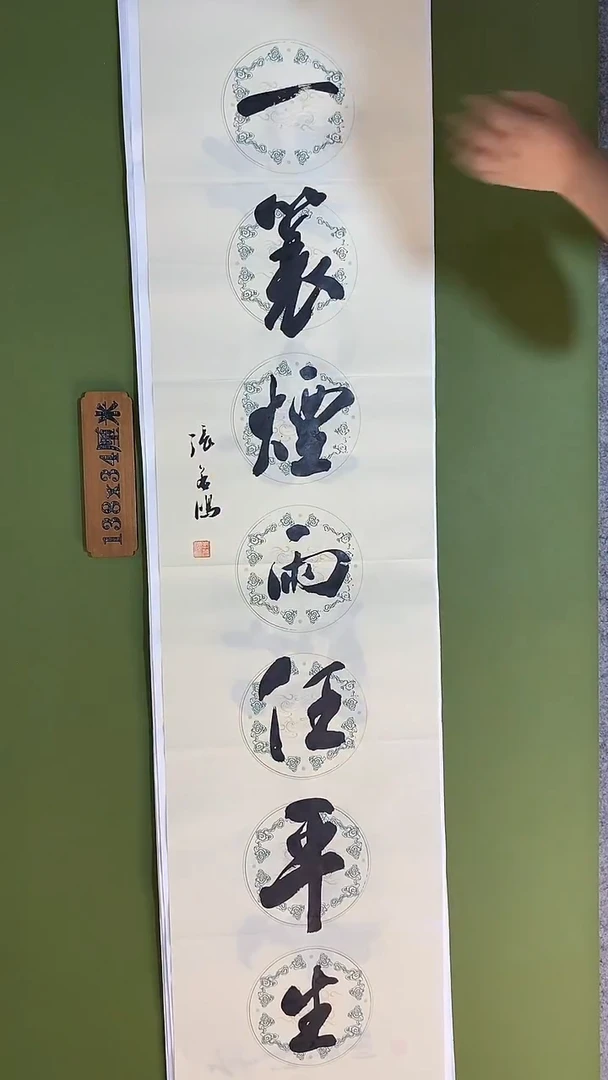 一蓑煙雨任平生
張
138x34厘米